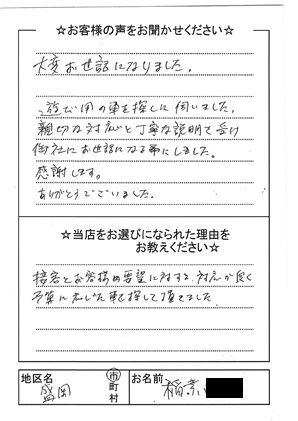 ☆お客様の声をお聞かせください☆
大変お世話になりました。
遊び用の車を探しに伺いました。
親切な対応と丁寧な説明を受け
御社にお世話になる事にしました。
感謝します。
ありがとうございました。
☆当店をお選びになられた理由を
お教えください☆
接客とお客様の要望に対する対応が良く
予算に応じた車を探して頂きました
地区名 盛岡 市 町 村 お名前 稲葉